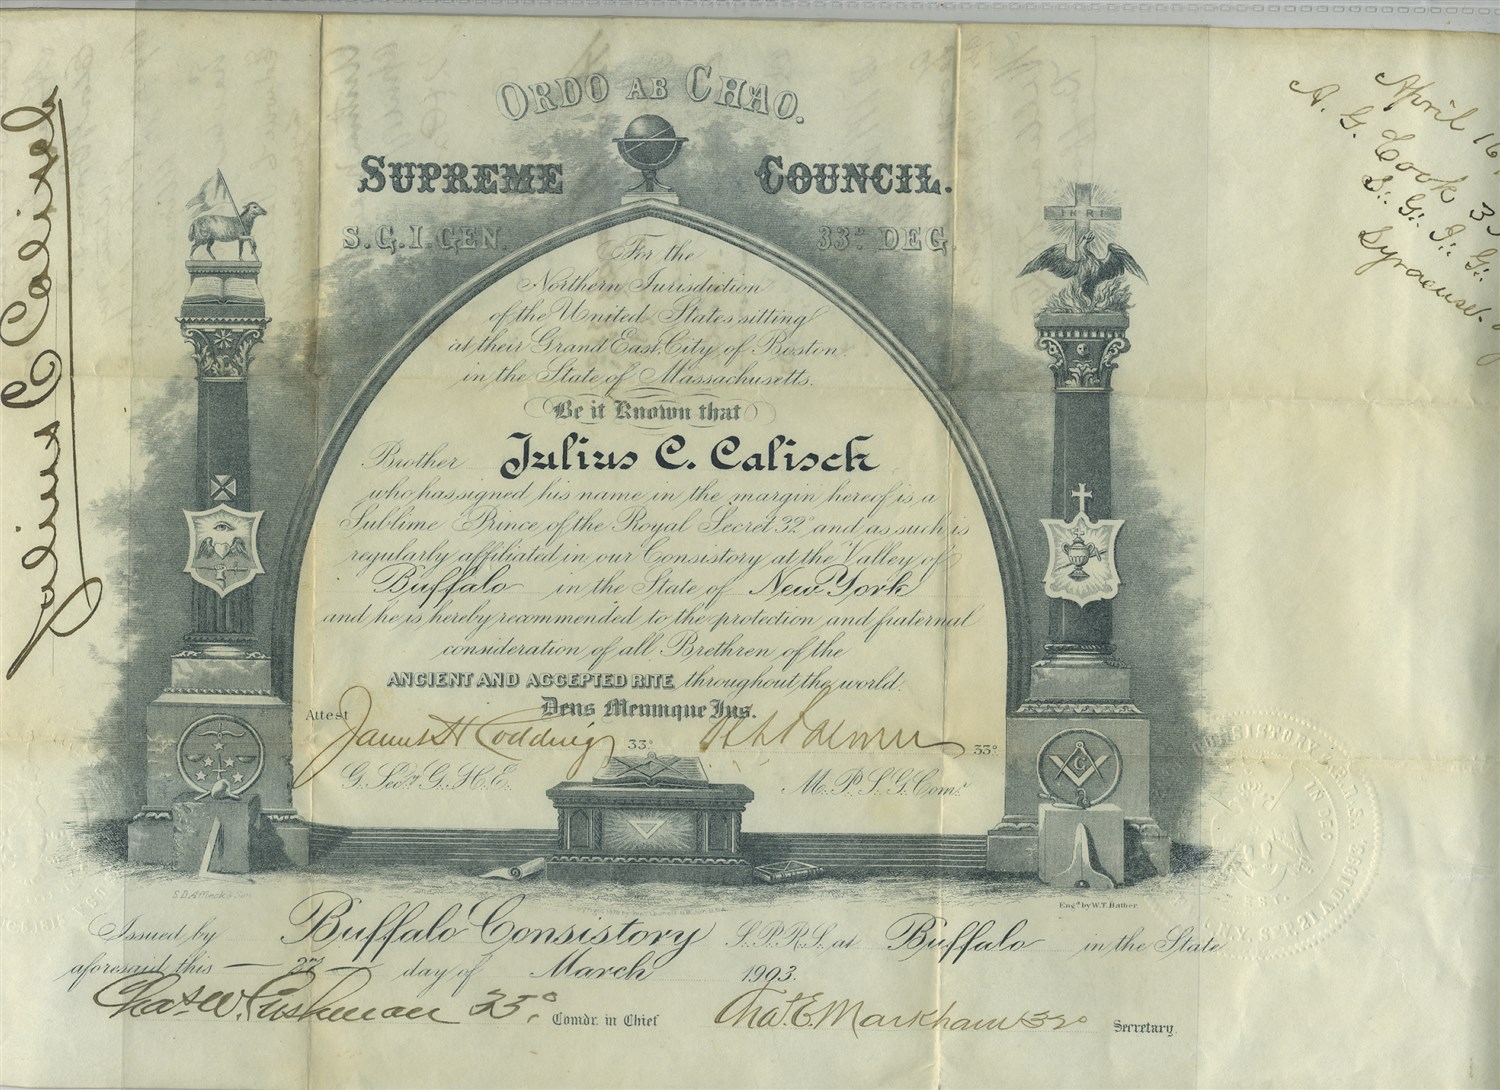 Julius C Calisch
April 16
A. G. Cook 33
S∴ G∴ I∴ G∴
Syracuse.
ORDO AB CHAO.
SUPREME COUNCIL.
S.G.I.GEN. 33º DEG.
INRI
For the
Northern Jurisdiction
of the United States sitting
at their Grand East, City of Boston
in the State of Massachusetts.
Be it Known that
Brother Julius C. Calisch
who has signed his name in the margin hereof is a
Sublime Prince of the Royal Secret 32º and as such is
regularly affiliated in our Consistory at the Valley of
Buffalo in the State of New York
and he is hereby recommended to the protection and fraternal
consideration of all Brethren of the
ANCIENT AND ACCEPTED RITE throughout the world.
Deus Meumque Jus.
Attest James H Codding 33º 33º
G. Sec'y G. H. E. M. P. S. G. Com.
G
Eng'd by W.T. Bather.
Issued by Buffalo Consistory S.P.R.S. at Buffalo in the State
aforesaid this 27 day of March 1903.
Chas W. Cushman 33º Comdr. in Chief Cha's. E. Markham 32º Secretary.